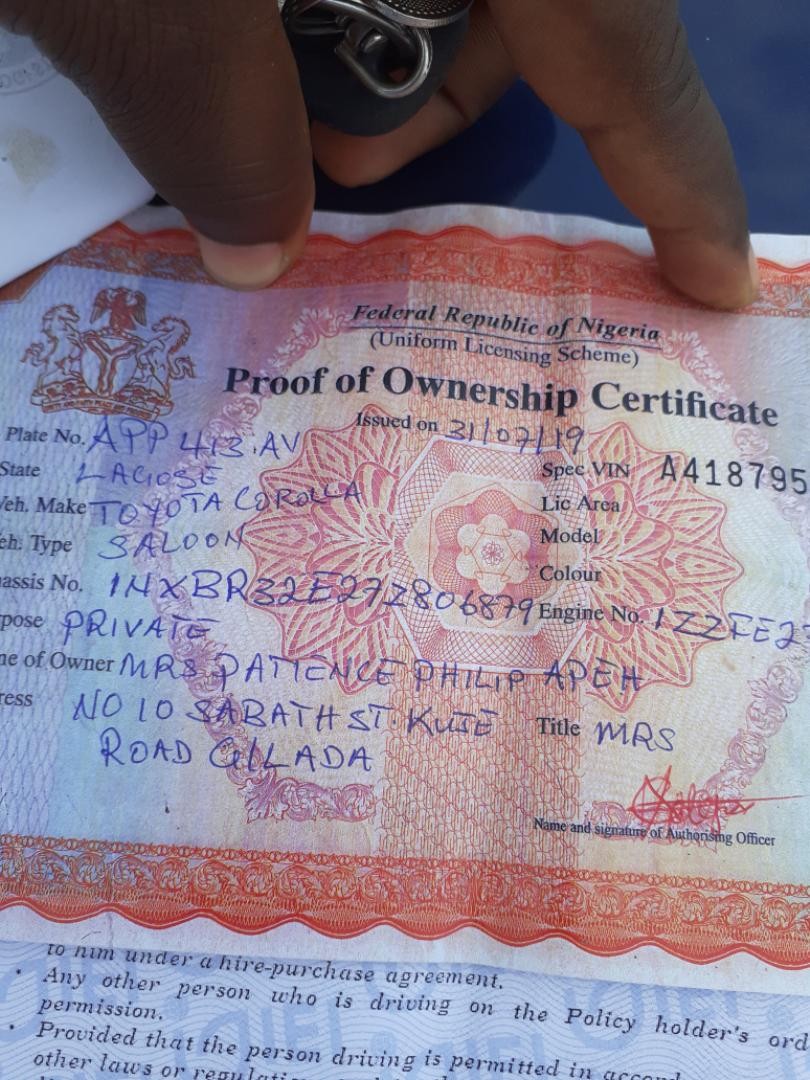 Federal Republic of Nigeria
(Uniform Licensing Scheme)
Proof of Ownership Certificate
Issued on 31/07/19
Plate No. APP 413.AV
State LAGOSE
Veh. Make TOYOTA COROLLA
eh. Type SALOON
assis No. 1NXBR32E27Z806879
pose PRIVATE
ne of Owner MRS PATIENCE PHILIP APEH
ress NO 10 SABATH ST. KUJE
ROAD GILADA
Spec VIN A418795
Lic Area
Model
Colour
Engine No. 1ZZFE2
Title MRS
Name and signature of Authorising Officer
to him under a hire-purchase agreement.
• Any other person who is driving on the Policy holder's ord
permission.
• Provided that the person driving is permitted in accord
other laws or